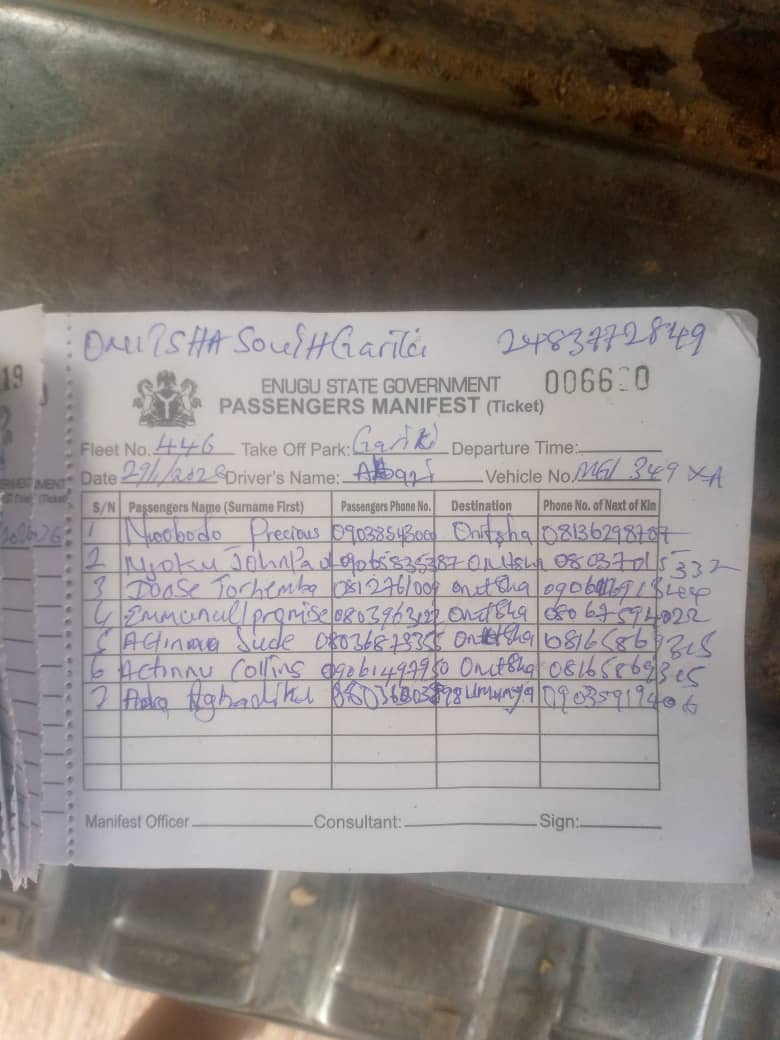 ONITSHA South Gariki 2483772849
ENUGU STATE GOVERNMENT 0066
PASSENGERS MANIFEST (Ticket)
Fleet No. 446 Take Off Park: Gariki Departure Time:
Date 29/1/2026 Driver's Name: Abazi Vehicle No. MGI 349 XA
S/N Passengers Name (Surname First) Passengers Phone No. Destination Phone No. of Next of Kin
1 Nwobodo Precious 09038543000 Onitsha 08136298707
2 Njoku JohnPaul 09065835387 Onitsha
3 Doose Torhemba 0812761009 Onitsha
4 Emmanuel promise 0803963122 Onitsha 08067594022
5 Jude 08036879355 Onitsha 08165869365
6 Collins 09061497950 Onitsha 08165869365
7 Umunya 09035919406
Manifest Officer Consultant: Sign:
19